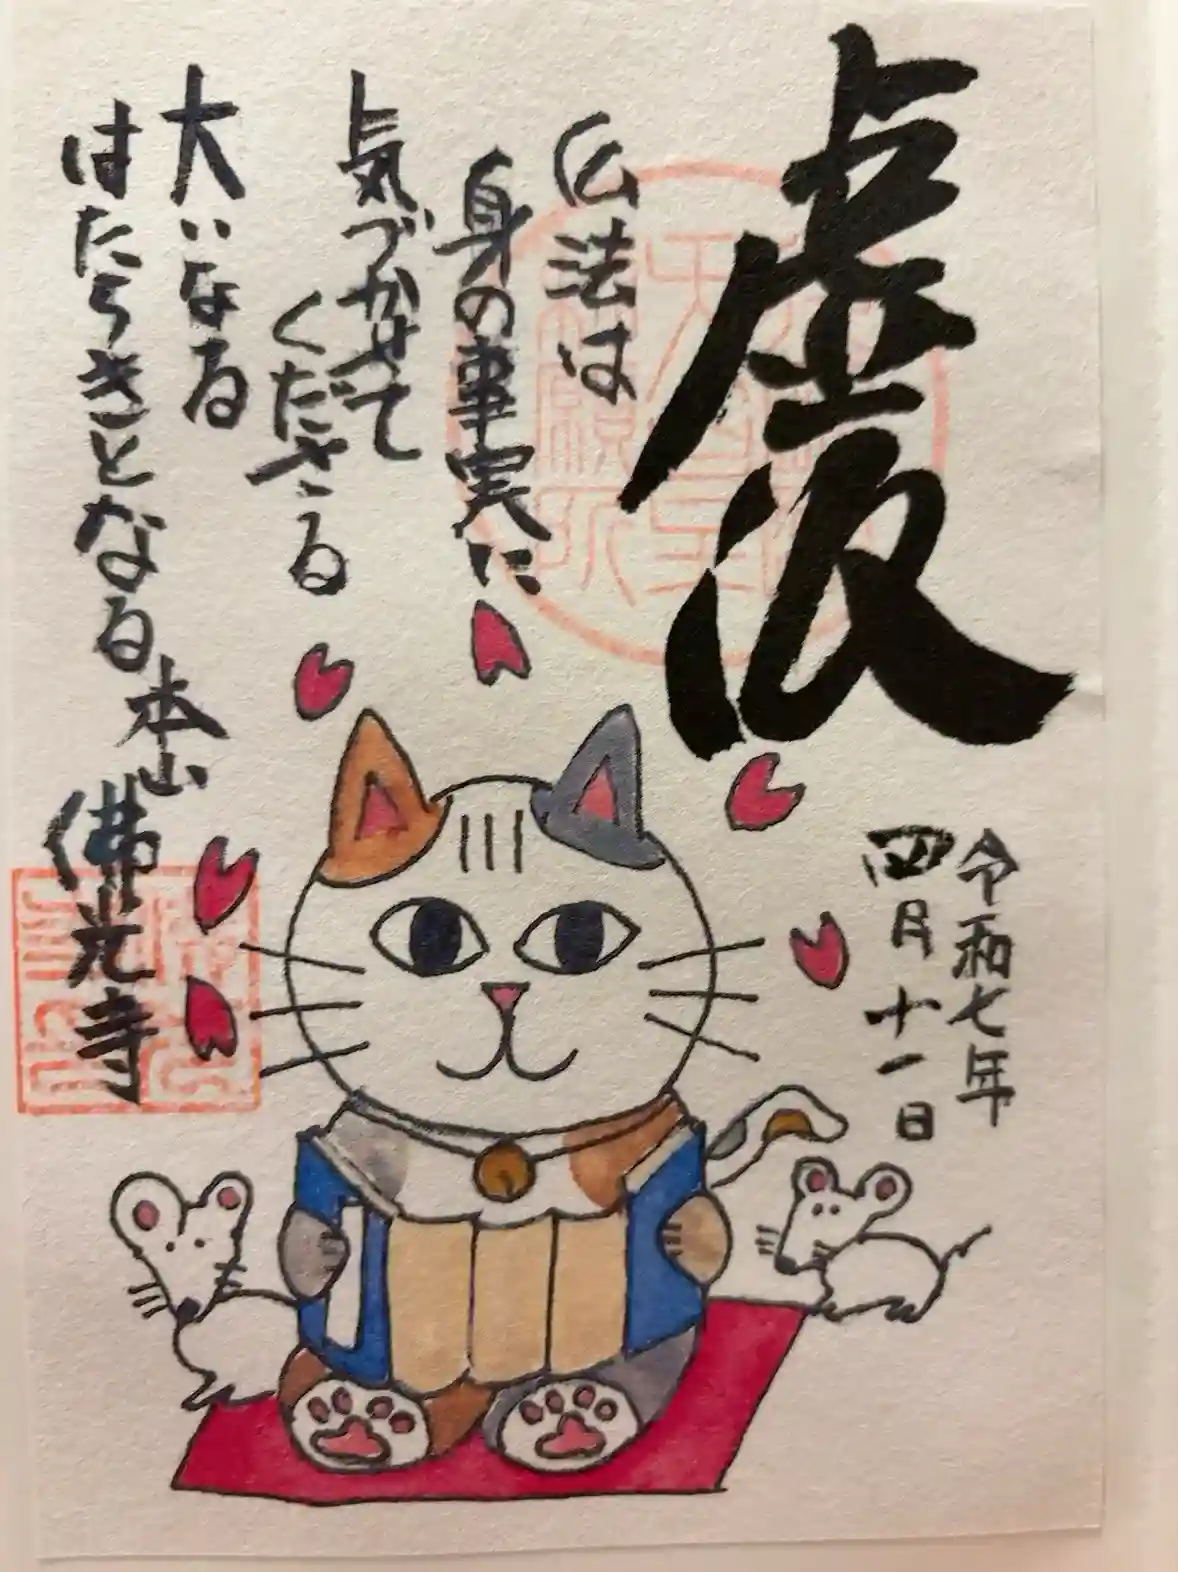 虚仮
仏法は
身の事実に
気づかせて
くださる
大いなる
はたらきとなる
本山
佛光寺
令和七年
四月十一日